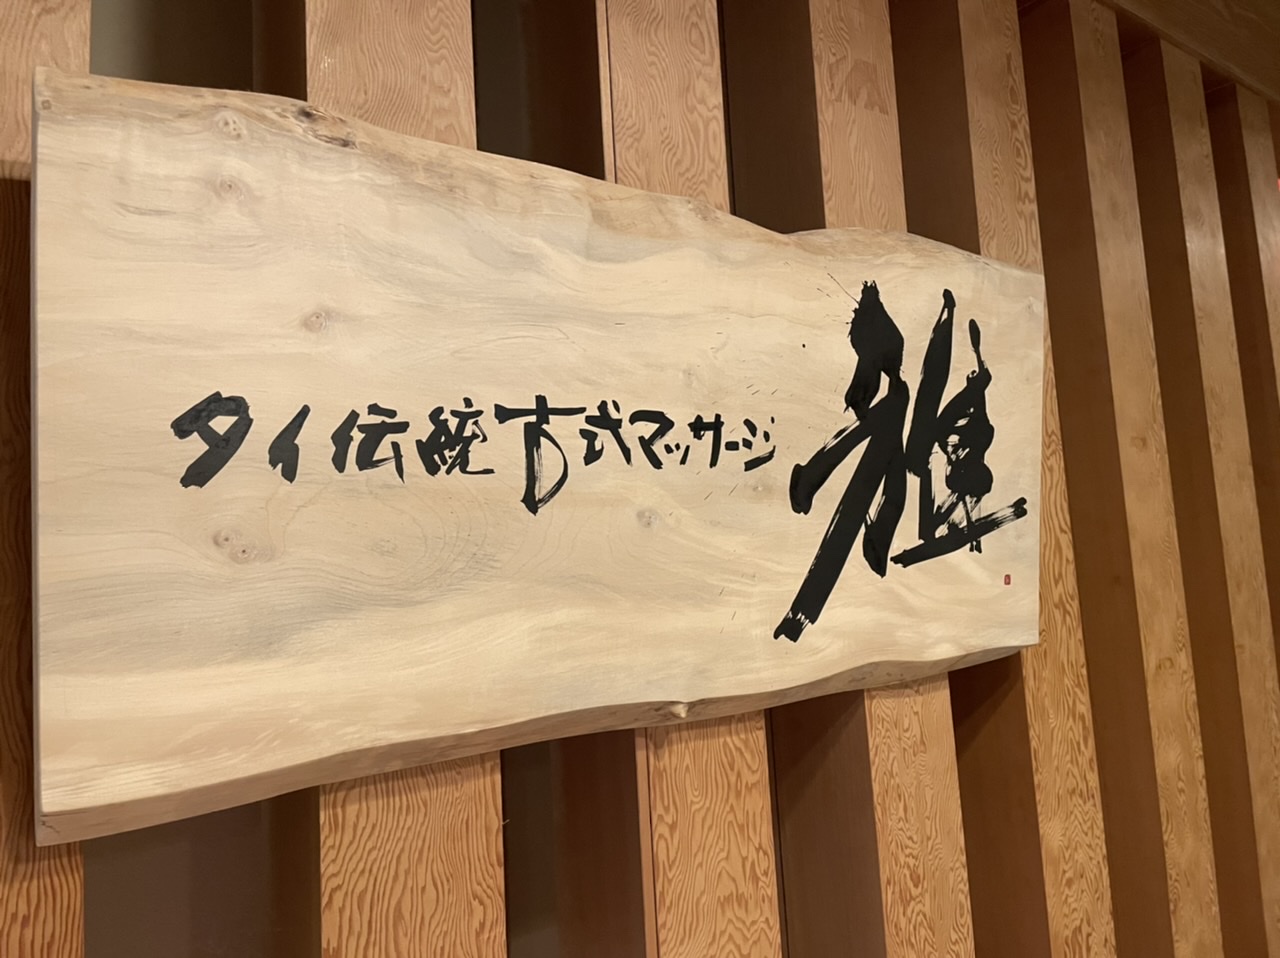 タイ伝統古式マッサージ 雅